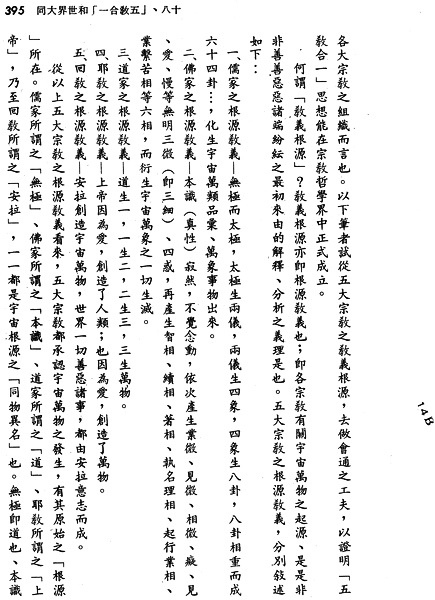 十八、「五教合一」和世界大同 395
各大宗教之組織而言也。以下筆者試從五大宗教之教義根源，去做會通之工夫，以證明「五
教合一」思想能在宗教哲學界中正式成立。
何謂「教義根源」？教義根源亦即根源教義也；即各宗教有關宇宙萬物之起源、是是非
非善善惡惡諸端紛紜之最初來由的解釋、分析之義理是也。五大宗教之根源教義，分別敘述
如下：
一、儒家之根源教義—無極而太極，太極生兩儀，兩儀生四象，四象生八卦，八卦相重而成
六十四卦…，化生宇宙萬類品彙、萬象事物出來。
二、佛家之根源教義—本識（真性）寂然，不覺念動，依次產生業微、見微、相微、癡、見
、愛、慢等無明三微（即三細）、四惑，再產生智相、續相、著相、執名理相、起行業相、
業繫苦相等六相，而衍生宇宙萬象之一切生滅。
三、道家之根源教義—道生一，一生二，二生三，三生萬物。
四、耶教之根源教義—上帝因為愛，創造了人類；也因為愛，創造了萬物。
五、回教之根源教義—安拉創造宇宙萬物，世界一切善惡諸事，都由安拉意志而成。
從以上五大宗教之根源教義看來，五大宗教都承認宇宙萬物之發生，有其原始之「根源
」所在。儒家所謂之「無極」、佛家所謂之「本識」、道家所謂之「道」、耶教所謂之「上
帝」，乃至回教所謂之「安拉」，一一都是宇宙根源之「同物異名」也。無極即道也、本識
14B